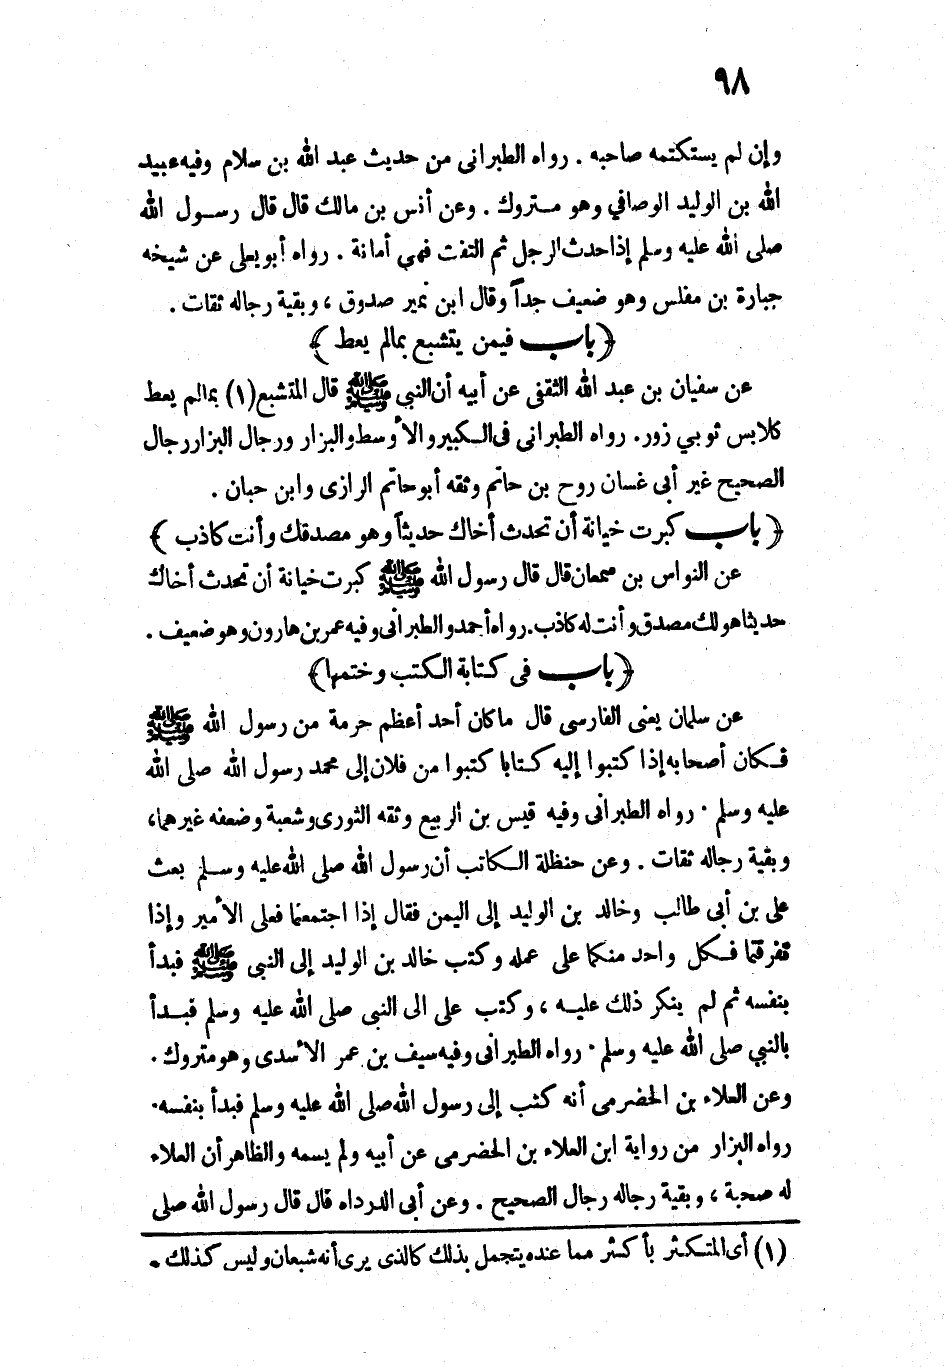 ٩٨
وإن لم يستكتمه صاحبه . رواه الطبرانى من حديث عبد الله بن سلام وفيه عبيد
الله بن الوليد الوصافي وهو متروك . وعن أنس بن مالك قال قال رسول الله
صلى الله عليه وسلم إذا حدث الرجل ثم التفت فهي أمانة . رواه أبو يعلى عن شيخه
جبارة بن مفلس وهو ضعيف جداً وقال ابن نمير صدوق ، وبقية رجاله ثقات .
﴿ باب فيمن يتشبع بمالم يعط ﴾
عن سفيان بن عبد الله الثقفى عن أبيه أن النبي ﷺ قال المتشبع (١) بمالم يعط
كلابس ثوبي زور . رواه الطبرانى فى الكبير والأوسط والبزار ورجال البزار رجال
الصحيح غير أبى غسان روح بن حاتم وثقه أبو حاتم الرازى وابن حبان .
﴿ باب كبرت خيانة أن تحدث أخاك حديثاً وهو مصدقك وأنت كاذب ﴾
عن النواس بن سمعان قال قال رسول الله ﷺ كبرت خيانة أن تحدث أخاك
حديثا هو لك مصدق وأنت له كاذب . رواه أحمد والطبرانى وفيه عمر بن هارون وهو ضعيف .
﴿ باب فى كتابة الكتب وختمها ﴾
عن سلمان يعنى الفارسى قال ما كان أحد أعظم حرمة من رسول الله ﷺ
فكان أصحابه إذا كتبوا إليه كتابا كتبوا من فلان إلى محمد رسول الله صلى الله
عليه وسلم . رواه الطبرانى وفيه قيس بن الربيع وثقه الثورى وشعبة وضعفه غيرهما ،
وبقية رجاله ثقات . وعن حنظلة الكاتب أن رسول الله صلى الله عليه وسلم بعث
على بن أبى طالب وخالد بن الوليد إلى اليمن فقال إذا اجتمعتما فعلى الأمير وإذا
تفرقتما فكل واحد منكما على عمله وكتب خالد بن الوليد إلى النبى ﷺ فبدأ
بنفسه ثم لم ينكر ذلك عليه ، وكتب على الى النبى صلى الله عليه وسلم فبدأ
بالنبي صلى الله عليه وسلم . رواه الطبرانى وفيه سيف بن عمر الأسدى وهو متروك .
وعن العلاء بن الحضرمى أنه كتب إلى رسول الله صلى الله عليه وسلم فبدأ بنفسه .
رواه البزار من رواية ابن العلاء بن الحضرمى عن أبيه ولم يسمه والظاهر أن العلاء
له صحبة ، وبقية رجاله رجال الصحيح . وعن أبى الدرداء قال قال رسول الله صلى
(١) أى المتكثر بأكثر مما عنده يتجمل بذلك كالذى يرى أنه شبعان وليس كذلك .